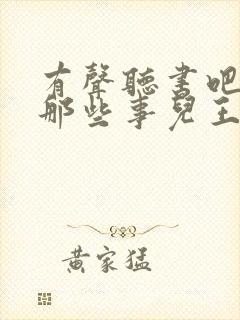 有聲聽書吧
那些事兒王
黃家猛